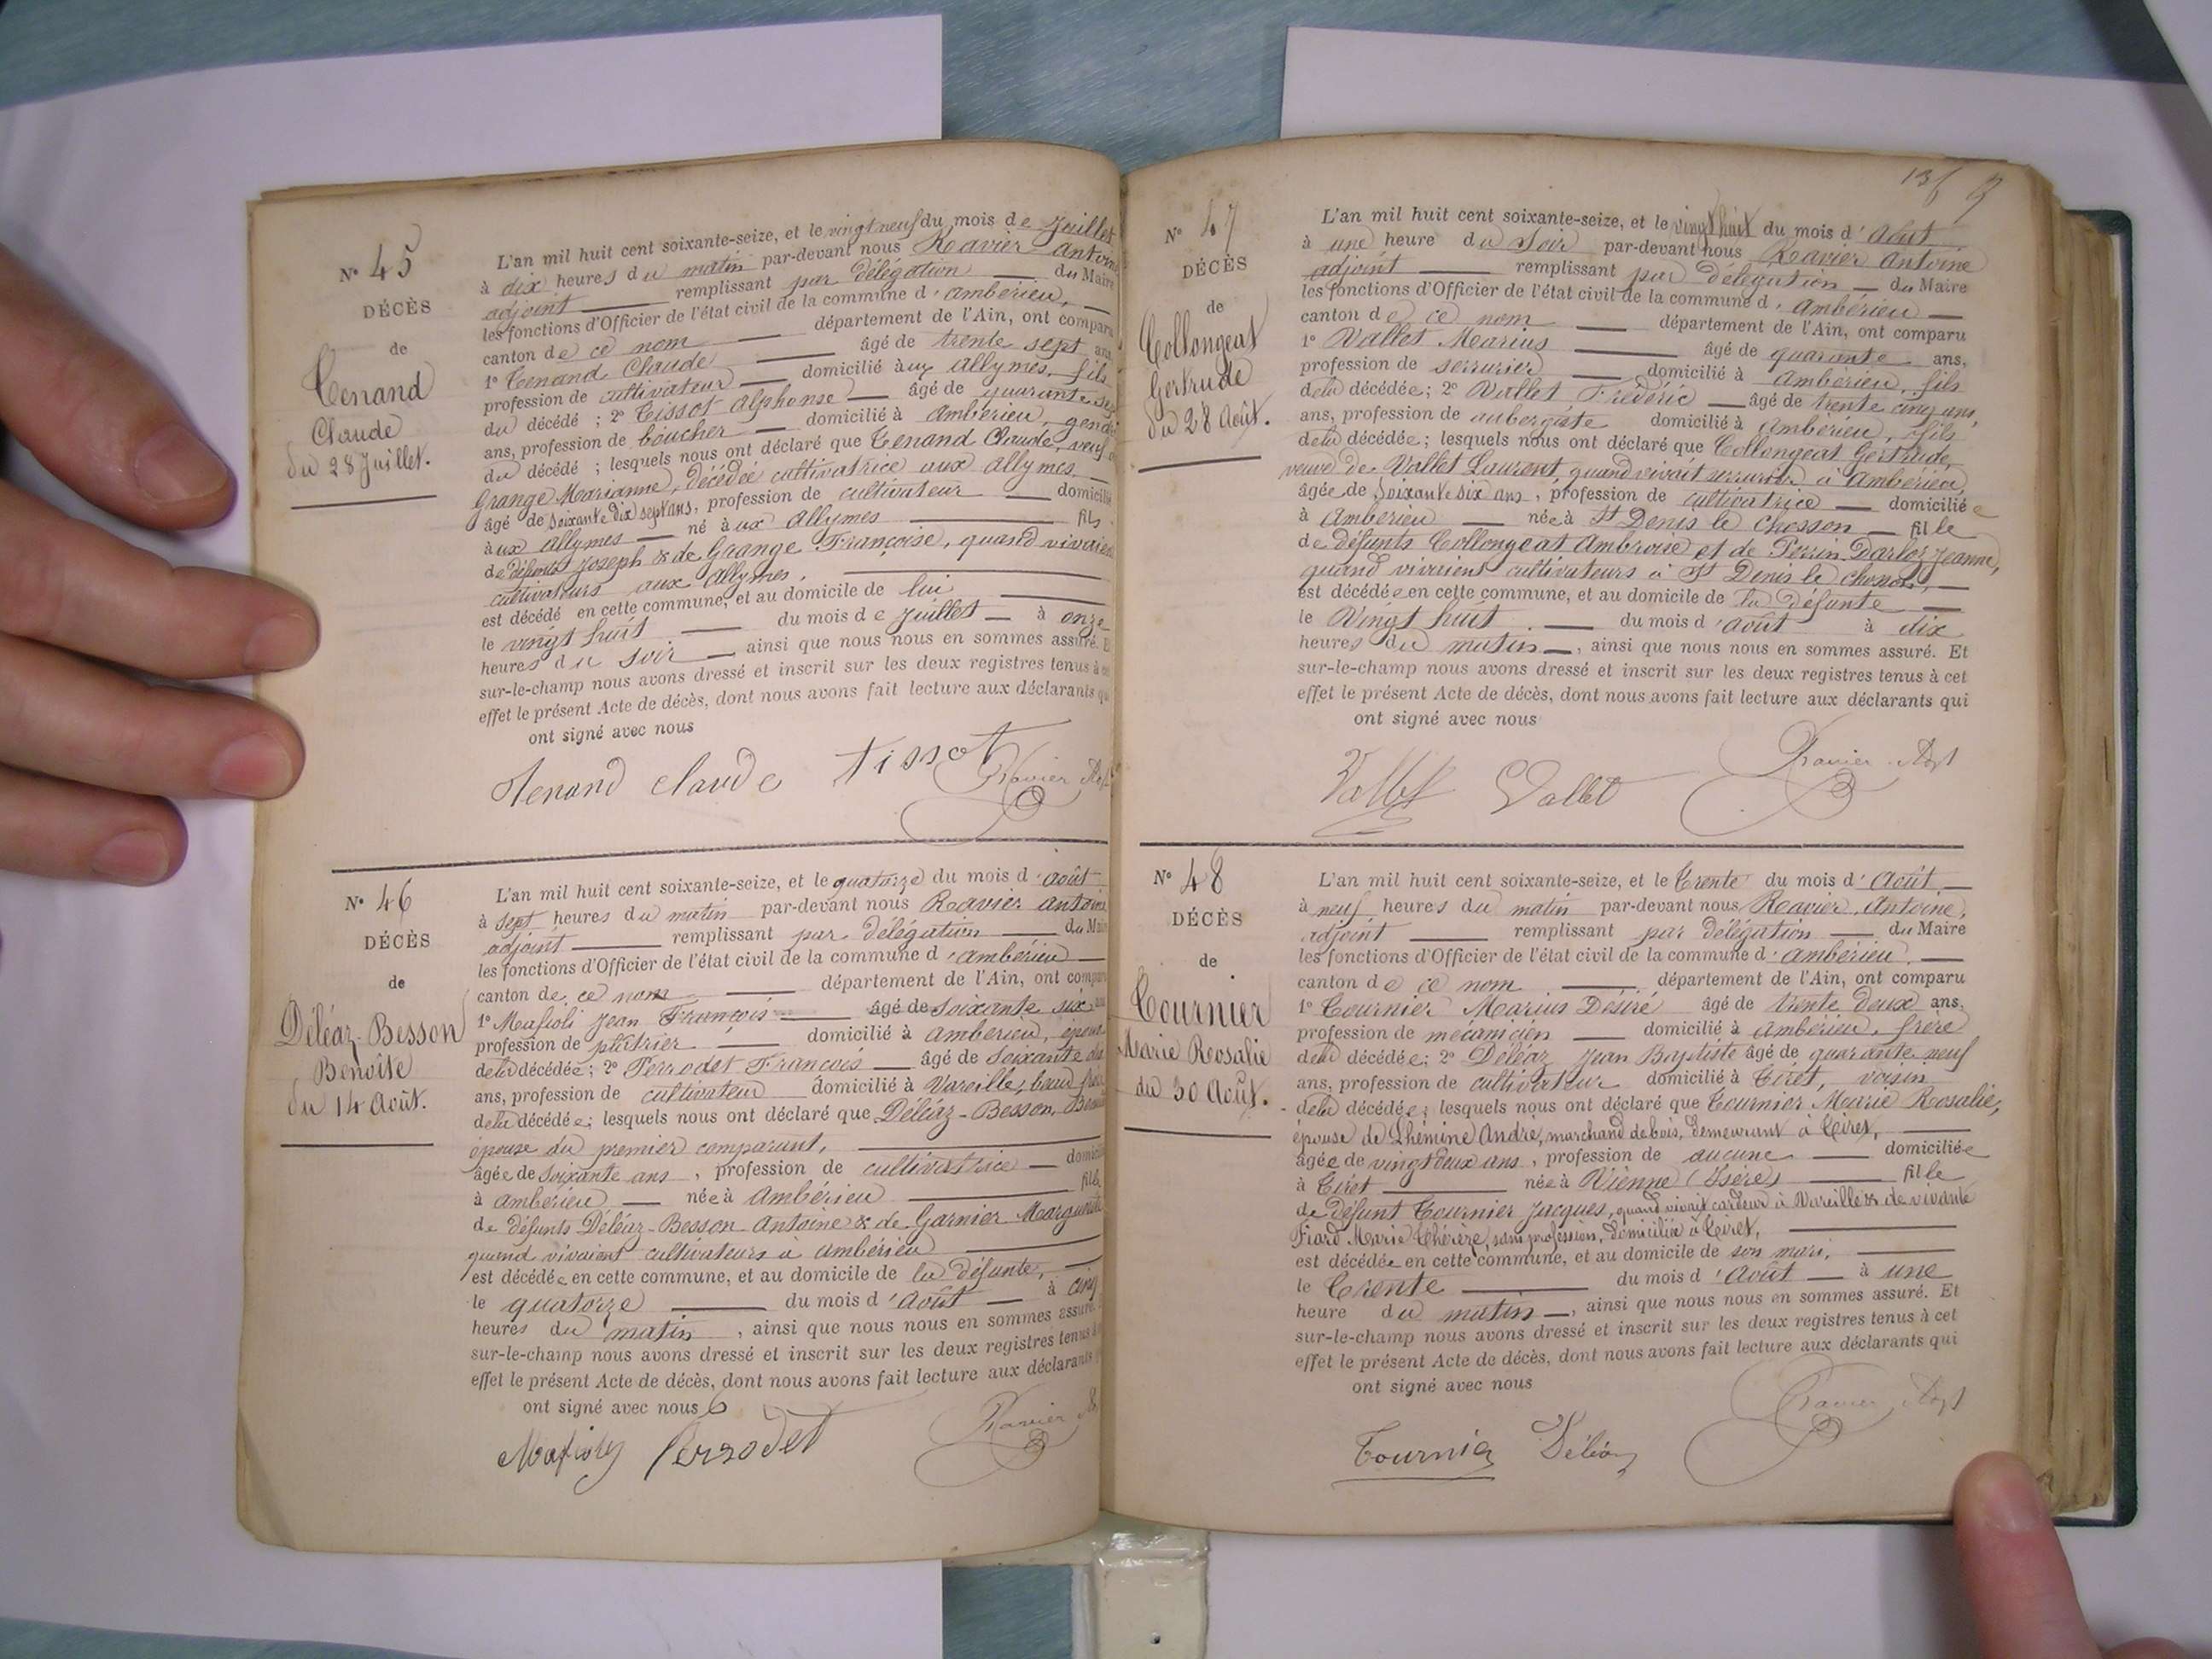 N° 45
DÉCÈS
de
Tenand
Claude
du 28 Juillet.
L'an mil huit cent soixante-seize, et le vingt neuf du mois de Juillet
à dix heures du matin par-devant nous Ravier Antoine
adjoint remplissant par délégation du Maire
les fonctions d'Officier de l'état civil de la commune d'Ambérieu,
canton de ce nom département de l'Ain, ont comparu
1° Tenand Claude âgé de trente sept ans,
profession de cultivateur domicilié aux Allymes, fils
du décédé ; 2° Tissot Alphonse âgé de quarante sept
ans, profession de boucher domicilié à Ambérieu, gendre
du décédé ; lesquels nous ont déclaré que Tenand Claude, veuf de
Grange Marianne, décédée cultivatrice aux Allymes
âgé de soixante dix sept ans, profession de cultivateur domicilié
aux Allymes né aux Allymes fils
de défunts Joseph & de Grange Françoise, quand vivaient
cultivateurs aux Allymes,
est décédé en cette commune, et au domicile de lui
le vingt huit du mois de Juillet à onze
heures du soir, ainsi que nous nous en sommes assuré. Et
sur-le-champ nous avons dressé et inscrit sur les deux registres tenus à cet
effet le présent Acte de décès, dont nous avons fait lecture aux déclarants qui
ont signé avec nous
Tenand claude Tissot Ravier Adjt
N° 46
DÉCÈS
de
Déléaz-Besson
Benoîte
du 14 Août.
L'an mil huit cent soixante-seize, et le quatorze du mois d'Août
à sept heures du matin par-devant nous Ravier Antoine
adjoint remplissant par délégation du Maire
les fonctions d'Officier de l'état civil de la commune d'Ambérieu
canton de ce nom département de l'Ain, ont comparu
1° Mafioli Jean François âgé de soixante six ans
profession de plâtrier domicilié à Ambérieu, époux
de la décédée ; 2° Perrodet François âgé de soixante
ans, profession de cultivateur domicilié à Vareille, beau frère
de la décédée ; lesquels nous ont déclaré que Déléaz-Besson, Benoîte
épouse du premier comparant,
âgée de soixante ans, profession de cultivatrice domiciliée
à Ambérieu née à Ambérieu fille
de défunts Déléaz-Besson Antoine & de Garnier Marguerite
quand vivaient cultivateurs à Ambérieu
est décédée en cette commune, et au domicile de la défunte,
le quatorze du mois d'Août à cinq
heures du matin, ainsi que nous nous en sommes assuré.
sur-le-champ nous avons dressé et inscrit sur les deux registres tenus à
effet le présent Acte de décès, dont nous avons fait lecture aux déclarants
ont signé avec nous
Mafioly Perrodet Ravier
136
N° 47
DÉCÈS
de
Collongeat
Gertrude
du 28 Août.
L'an mil huit cent soixante-seize, et le vingt huit du mois d'Août
à une heure du Soir par-devant nous Ravier Antoine
adjoint remplissant par délégation du Maire
les fonctions d'Officier de l'état civil de la commune d'Ambérieu
canton de ce nom département de l'Ain, ont comparu
1° Vallet Marius âgé de quarante ans,
profession de serrurier domicilié à Ambérieu, fils
de la décédée ; 2° Vallet Frédéric âgé de trente cinq ans,
ans, profession de aubergiste domicilié à Ambérieu, fils
de la décédée ; lesquels nous ont déclaré que Collongeat Gertrude,
veuve de Vallet Laurent, quand vivait serrurier à Ambérieu,
âgée de soixante six ans, profession de cultivatrice domiciliée
à Ambérieu née à St Denis le Chosson fille
de défunts Collongeat Ambroise et de Perrin Darloz Jeanne,
quand vivaient cultivateurs à St Denis le Chosson,
est décédée en cette commune, et au domicile de la défunte
le Vingt huit du mois d'août à dix
heures du matin, ainsi que nous nous en sommes assuré. Et
sur-le-champ nous avons dressé et inscrit sur les deux registres tenus à cet
effet le présent Acte de décès, dont nous avons fait lecture aux déclarants qui
ont signé avec nous
Vallet Vallet Ravier Adjt
N° 48
DÉCÈS
de
Tournier
Marie Rosalie
du 30 Août.
L'an mil huit cent soixante-seize, et le Trente du mois d'Août
à neuf heures du matin par-devant nous Ravier, Antoine,
adjoint remplissant par délégation du Maire
les fonctions d'Officier de l'état civil de la commune d'Ambérieu.
canton de ce nom département de l'Ain, ont comparu
1° Tournier Marius Désiré âgé de trente deux ans,
profession de mécanicien domicilié à Ambérieu, frère
de la décédée ; 2° Déléaz Jean Baptiste âgé de quarante neuf
ans, profession de cultivateur domicilié à Tiret, voisin
de la décédée ; lesquels nous ont déclaré que Tournier Marie Rosalie,
épouse de Lhémine André, marchand de bois, demeurant à Tiret,
âgée de vingt deux ans, profession de aucune domiciliée
à Tiret née à Vienne (Isère) fille
de défunt Tournier Jacques, quand vivait cardeur à Vareille & de vivante
Fiard Marie Thérèze, sans profession, domiciliée à Tiret,
est décédée en cette commune, et au domicile de son mari,
le Trente du mois d'Août à une
heure du matin, ainsi que nous nous en sommes assuré. Et
sur-le-champ nous avons dressé et inscrit sur les deux registres tenus à cet
effet le présent Acte de décès, dont nous avons fait lecture aux déclarants qui
ont signé avec nous
Tournier Déléaz Ravier Adjt